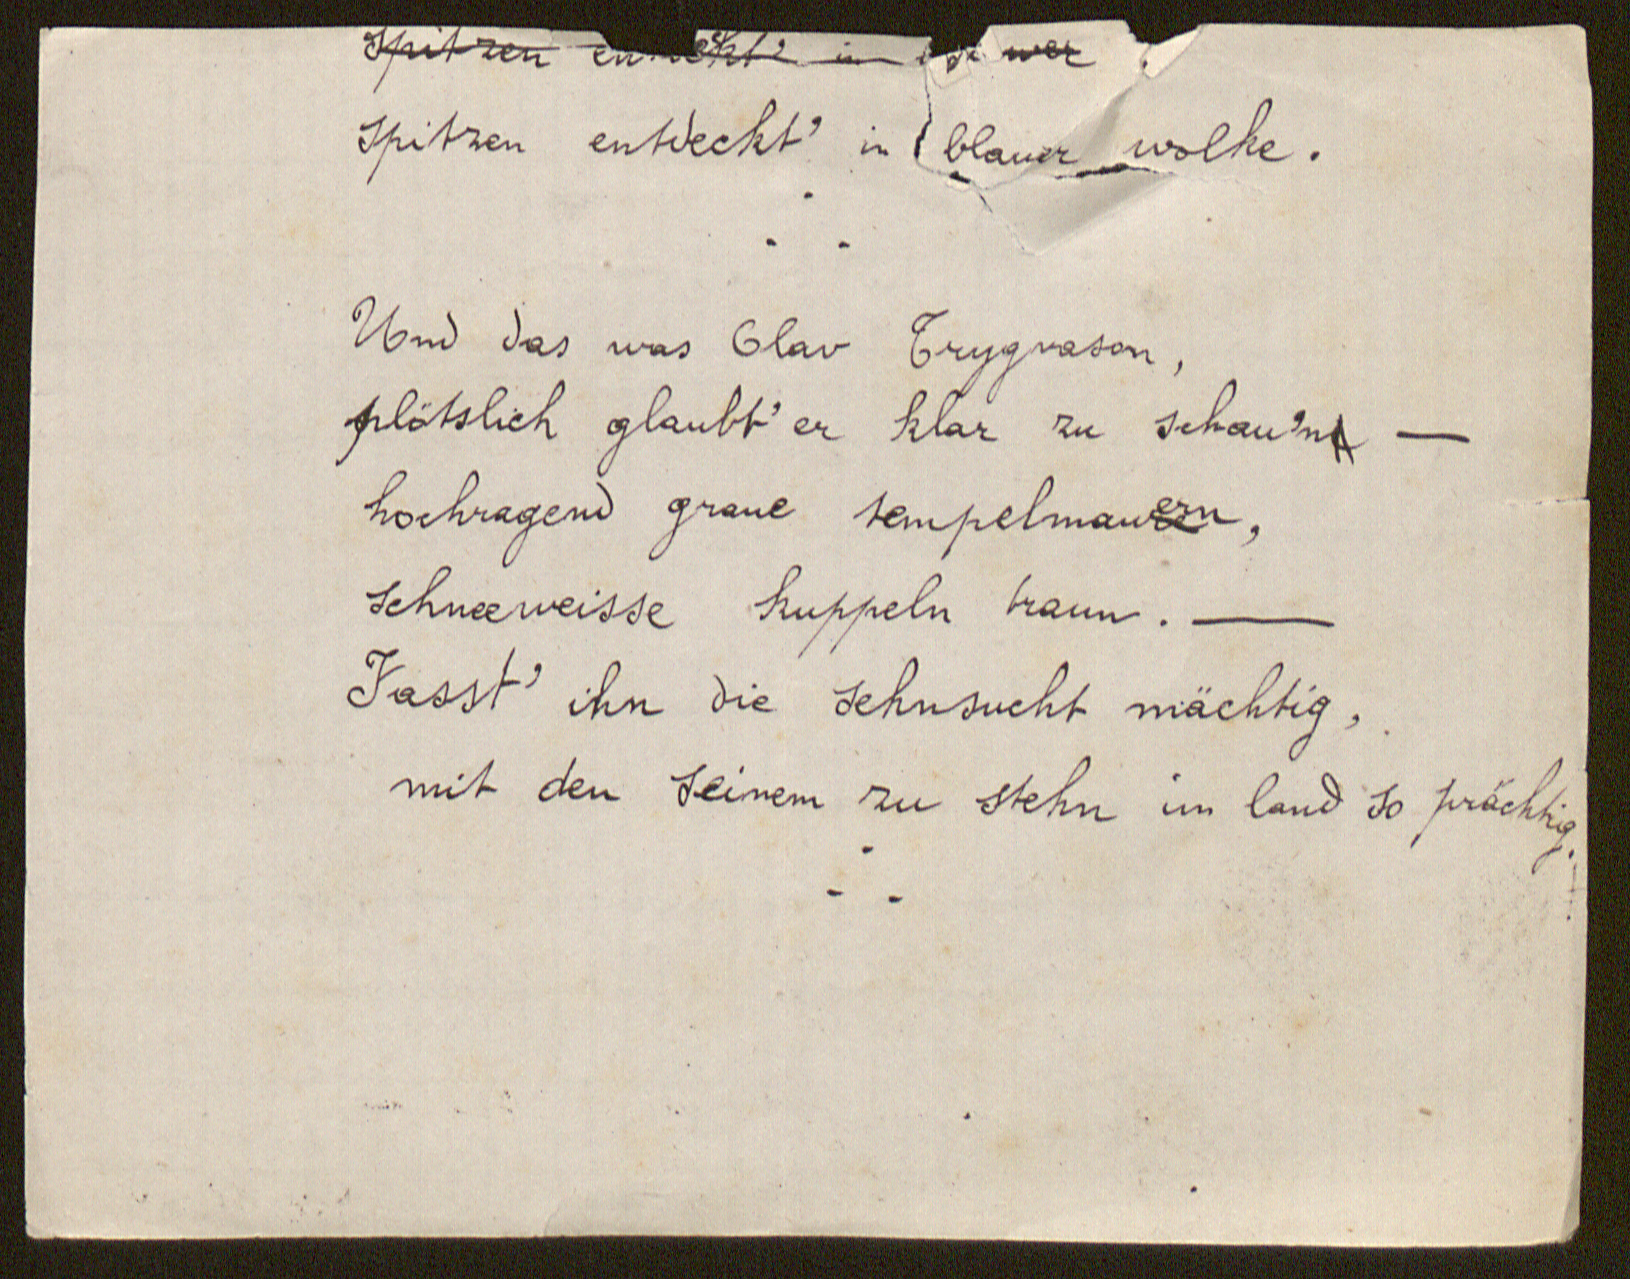 Spitzen entdeckt' in wer
Spitzen entdeckt' in blauer wolke.
Und das was Olav Trygvason,
plötslich glaubt' er klar zu schau'n —
hochragend graue tempelmauern,
schneeweisse kuppeln traun. —
Fasst' ihn die sehnsucht mächtig,
mit den seinem zu stehn im land so prächtig.